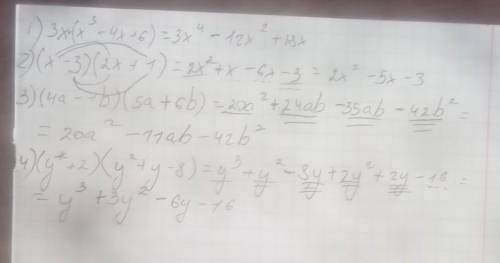 1) 3x(x³ - 4x + 6) = 3x⁴ - 12x² + 18x
2) (x - 3)(2x + 1) = 2x² + x - 6x - 3 = 2x² - 5x - 3
3) (4a - 7b)(5a + 6b) = 20a² + 24ab - 35ab - 42b² =
= 20a² - 11ab - 42b²
4) (y + 2)(y² + y - 8) = y³ + y² - 8y + 2y² + 2y - 16 =
= y³ + 3y² - 6y - 16